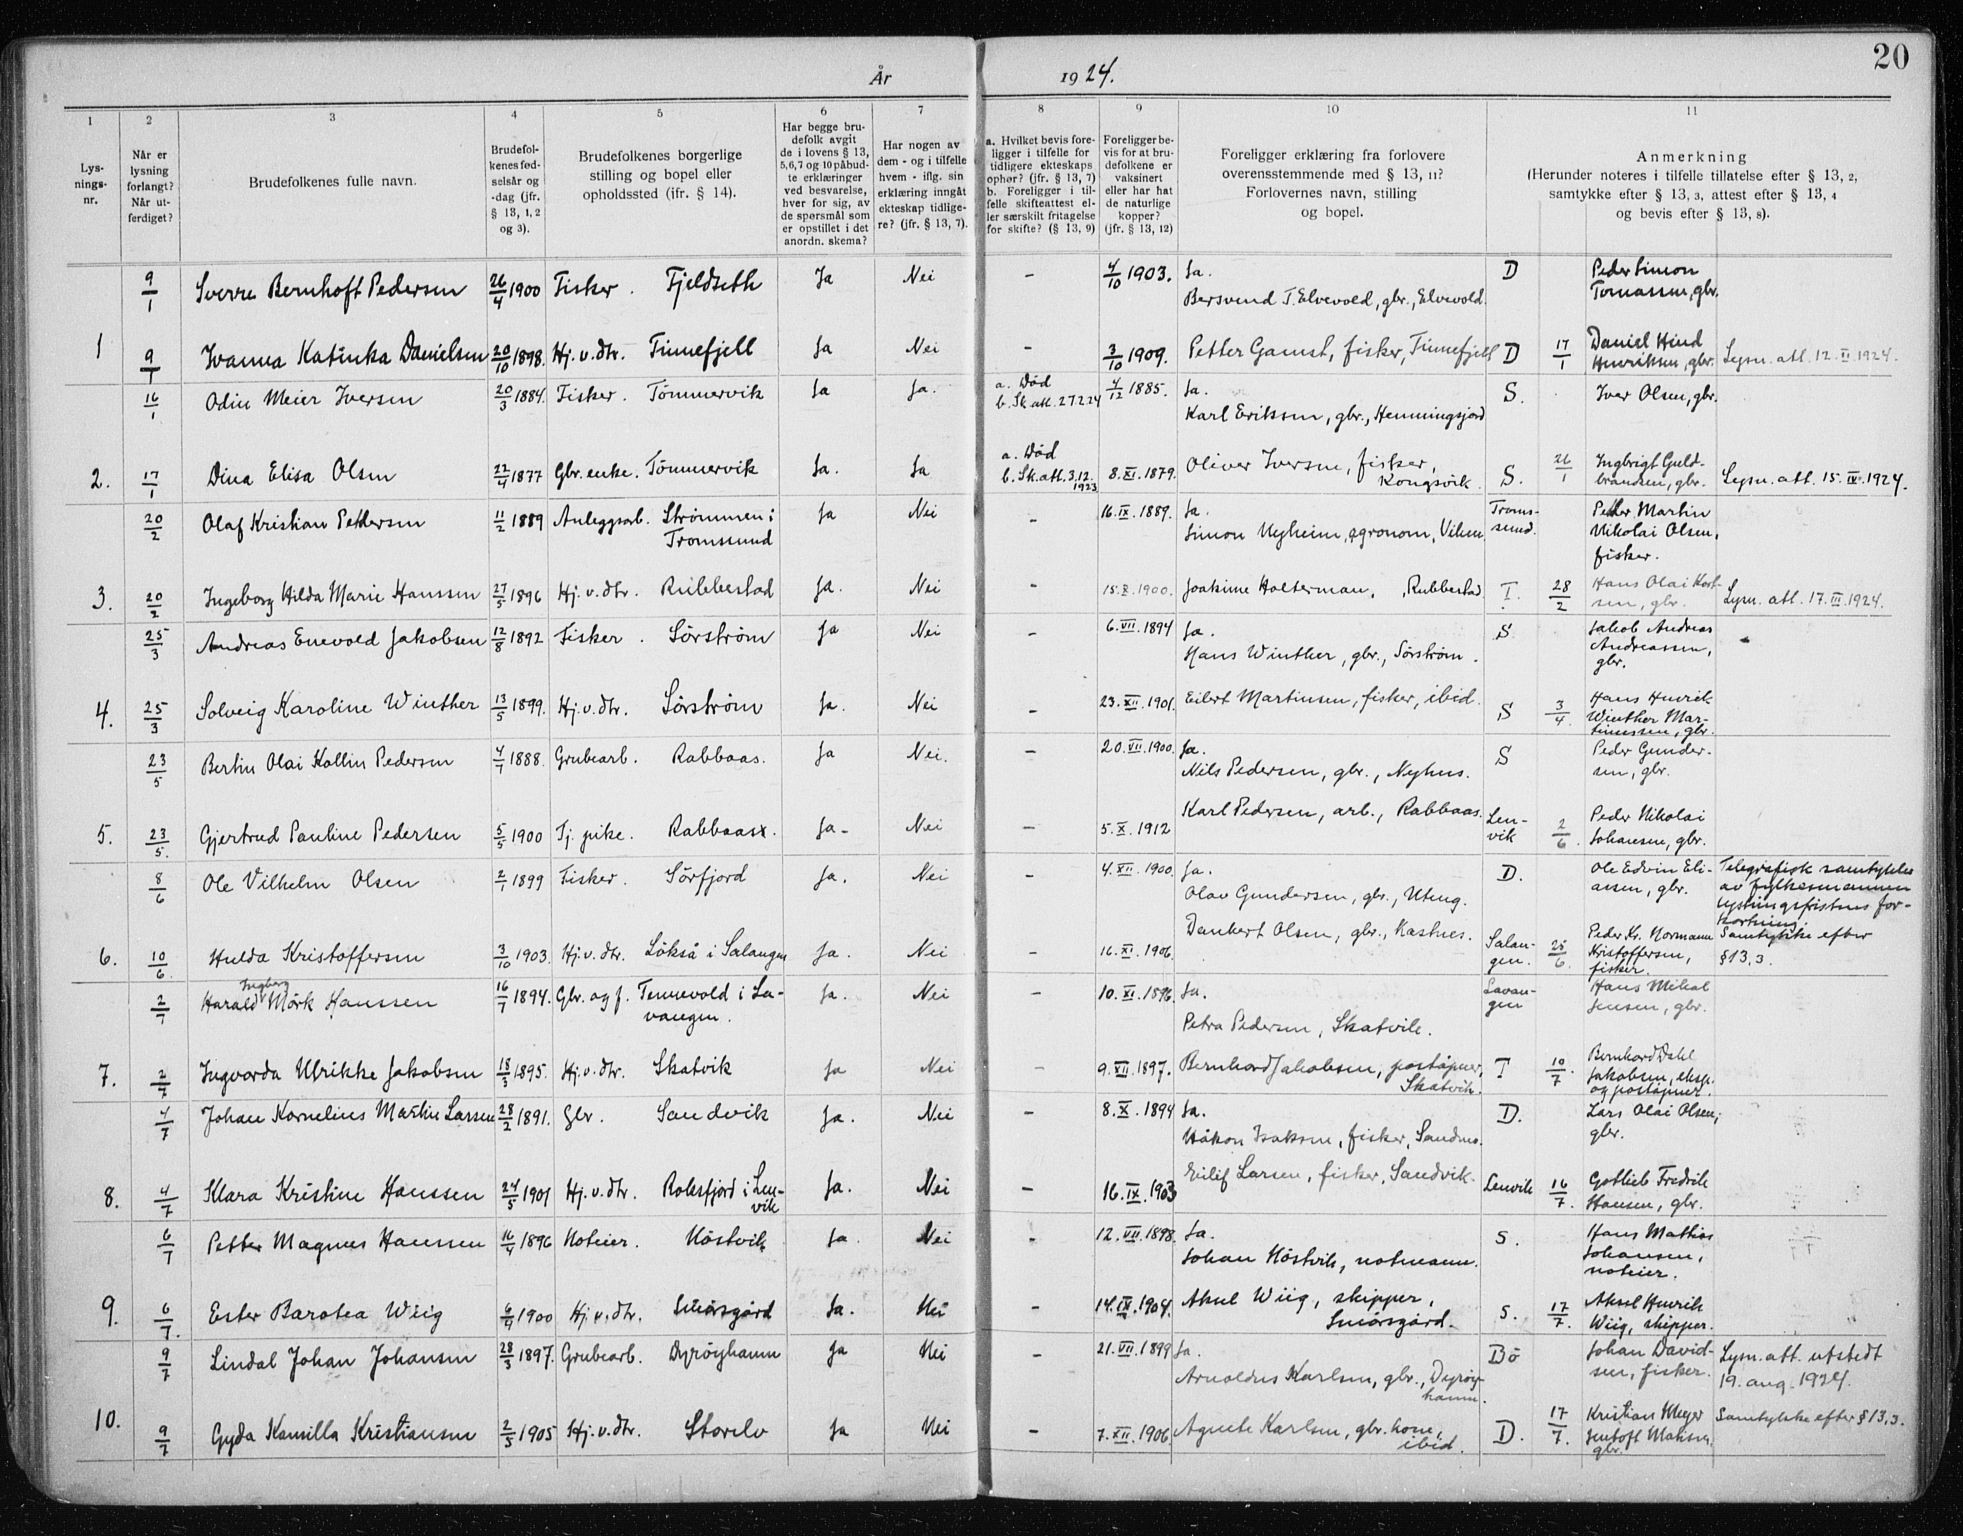 År 1924.
20
1 2 3 4 5 6 7 8 9 10 11
Lys-
nings-
nr.
Når er
lysning
forlangt?
Når ut-
ferdiget?
Brudefolkenes fulle navn.
Brudefol-
kenes fød-
selsår og
-dag (jfr.
§ 13, 1, 2
og 3).
Brudefolkenes borgerlige
stilling og bopel eller
opholdssted (jfr. § 14).
Har begge bru-
defolk avgit
de i lovens § 13,
5,6,7 og 10 påbud-
te erklæringer
ved besvarelse,
hver for sig, av
de spørsmål som
er opstillet i det
anordn. skema?
Har nogen av
dem - og i tilfelle
hvem - iflg. sin
erklæring inngått
ekteskap tidlige-
re? (jfr. § 13, 7).
a. Hvilket bevis fore-
ligger i tilfelle for
tidligere ekteskaps
ophør? (jfr. § 13, 7)
b. Foreligger i til-
felle skifteattest el-
ler særskilt fritagelse
for skifte? (§ 13, 9)
Foreligger be-
vis for at bru-
defolkene er
vaksinert
eller har hat
de naturlige
kopper?
(jfr. § 13, 12)
Foreligger erklæring fra forlovere
overensstemmende med § 13, 11?
Forlovernes navn, stilling
og bopel.
Anmerkning
(Herunder noteres i tilfelle tillatelse efter § 13, 2,
samtykke efter § 13, 3, attest efter § 13, 4
og bevis efter § 13, 8).
9/1 Sverre Bernhoft Pedersen 26/4 1900 Fisker. Fjeldseth Ja Nei - 4/10 1903. Ja.
Bersvend T. Elvevold, gbr., Elvevold. D Peder Simon
Tomassen, gbr.
1 9/1 Ivanna Katinka Danielsen 20/10 1898. Hj. v. dtr. Finnefjell Ja Nei - 3/10 1909. Petter Gamst, fisker, Finnefjell D 17/1 Daniel Hind
Henriksen, gbr. Lysn. att. 12. II. 1924.
16/1 Odin Meier Iversen 20/3 1884. Fisker. Tömmervik Ja Ja. a. Död
b. Sk. att. 27.2.24 4/12 1885. Ja.
Karl Eriksen, gbr., Hemmingsjord S. Iver Olsen, gbr.
2. 17/1 Dina Elisa Olsen 22/4 1877 Gbr. enke. Tömmervik Ja. Ja a. Död
b. Sk. att. 3.12.
1923 8. XI. 1879. Oliver Iversen, fisker,
Kongsvik. S. 26/1 Ingbrigt Guld-
brandsen, gbr. Lysn. att. 15. IV. 1924.
20/2 Olaf Kristian Pettersen 11/2 1889 Anleggsarb. Strömmen i
Tromssund Ja Nei - 16. IX. 1889. Ja.
Simon Nyheim, agronom, Troms-
sund. Peder Martin
Nikolai Olsen,
fisker.
3. 20/2 Ingeborg Hilda Marie Hanssen 27/5 1896 Hj. v. dtr. Rubbestad Ja. Nei - 15. X. 1900. Joakime Holterman, Rubbestad T. 28/2 Hans Olai
gbr. Lysn. att. 17. III. 1924.
25/3 Andreas Enevold Jakobsen 12/8 1892 Fisker. Sörström Ja Nei - 6. VII. 1894 Ja.
Hans Winther, gbr., Sörström. S Jakob Andreas
Andreassen,
gbr.
4. 25/3 Solveig Karoline Winther 13/5 1899. Hj. v. dtr. Sörström Ja. Nei - 23. XII. 1901. Eilert Martinsen, fisker, ibid. S 3/4. Hans Henrik
Winther Mar-
tinussen, gbr.
23/5 Bertin Olai Kollin Pedersen 4/7 1888. Grubearb. Rabbaas. Ja Nei. - 20. VII. 1900. Ja.
Nils Pedersen, gbr., Nyhus. S Peder Gunder-
sen, gbr.
5. 23/5. Gjertrud Pauline Pedersen 5/5 1900 Tj. pike. Rabbaas. Ja- Nei - 5. X. 1912 Karl Pedersen, arb., Rabbaas. Len-
vik 2/6. Peder Nikolai
Johansen, gbr.
8/6 Ole Vilhelm Olsen 2/1 1899 Fisker. Sörfjord Ja. Nei - 4. XII. 1900. Ja.
Olav Gundersen, gbr., Uteng. D. Ole Edvin Eli-
assen, gbr. Telegrafisk samtykke
av fylkesmannen
lysningsfristens for-
kortning.
6. 10/6. Hulda Kristoffersen 3/10 1903. Hj. v. dtr. Lökså i Salangen Ja. Nei - 16. XI. 1906. Dankert Olsen, gbr., Kastnes. Salan-
gen. 25/6. Peder Kr. Normann
Kristoffersen,
fisker. Samtykke efter
§ 13, 3.
2/7 Harald Ingberg Mörk Hanssen 16/7 1894. Gbr. og f. Tennevold i La-
vangen. Ja. Nei - 10. XI. 1896. Ja.
Petra Pedersen, Skatvik. Lavan-
gen Hans Mikal
Jensen, gbr.
7. 2/7 Ingvorda Ulrikke Jakobsen 18/3 1895. Hj. v. dtr. Skatvik Ja Nei - 9. VII. 1897. Bernhard Jakobsen, postöpner,
Skatvik. T 10/7. Bernhard Dahl
Jakobsen, eksp.
og postöpner.
4/7 Johan Kornelius Martin Larsen 28/2 1891. Gbr. Sandvik Ja. Nei - 8. X. 1894 Ja.
Håkon Isaksen, fisker, Sandnes. D. Lars Olai Olsen,
gbr.
8. 4/7 Klara Kristine Hanssen 24/5 1901 Hj. v. dtr. Rolesfjord i Len-
vik Ja. Nei - 16. IX. 1903 Eilif Larsen, fisker, Sandvik. Lenvik 16/7. Gotlieb Fredrik
Hansen, gbr.
6/7 Petter Magnus Hanssen 16/4 1896 Noteier. Höstvik Ja. Nei - 12. VII. 1898. Ja.
Johan Höstvik, notmann. S. Hans Mathias
Johansen,
noteier.
9. 6/7. Ester Barotea Wiig 6/4 1900 Hj. v. dtr. Smörsgård Ja. Nei - 14. IX. 1904. Aksel Wiig, skipper,
Smörsgård. S. 17/7. Aksel Henrik
Wiig, skipper.
9/7 Lindal Johan Johansen 28/3 1897. Grubearb. Dyröyhamn Ja Nei - 21. VII. 1899 Ja.
Arnoldus Karlsen, gbr., Dyröy-
hamn. Bö Johan David-
sen, fisker. Lysn. att. utstedt
19. aug. 1924.
10. 9/7 Gyda Kamilla Kristiansen 2/5 1905 Hj. v. dtr. Storelv Ja Nei - 7. XII. 1906 Agnete Karlsen, gbr. kone,
ibid. D. 17/7. Kristian Meyer
Jentoft
gbr. Samtykke efter § 13, 3.